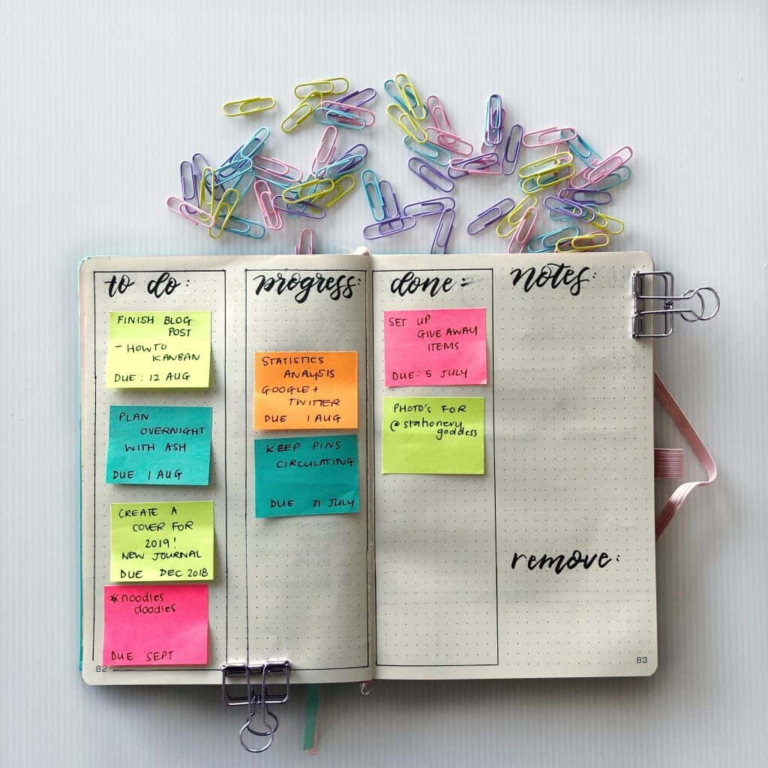 to do:
FINISH BLOG
POST
- HOW TO
KANBAN
DUE: 12 AUG
PLAN
OVERNIGHT
WITH ASH
DUE 1 AUG
CREATE A
COVER FOR
2019!
NEW JOURNAL
DUE DEC 2018
*noodles
doodles
DUE SEPT
82
progress:
STATISTICS
ANALYSIS
GOOGLE +
TWITTER
DUE 1 AUG
KEEP PINS
CIRCULATING
DUE 31 JULY
done:
SET UP
GIVE AWAY
ITEMS
DUE: 5 JULY
PHOTO'S FOR
@stationery
goddess
notes:
remove:
83